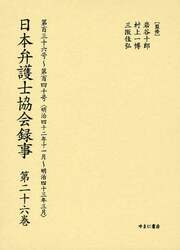 [監修]
岩谷十郎
村上一博
三阪佳弘
第百三十六号～第百四十号（明治四十二年十一月～明治四十三年三月）
日本弁護士協会録事 第二十六巻
ゆまに書房